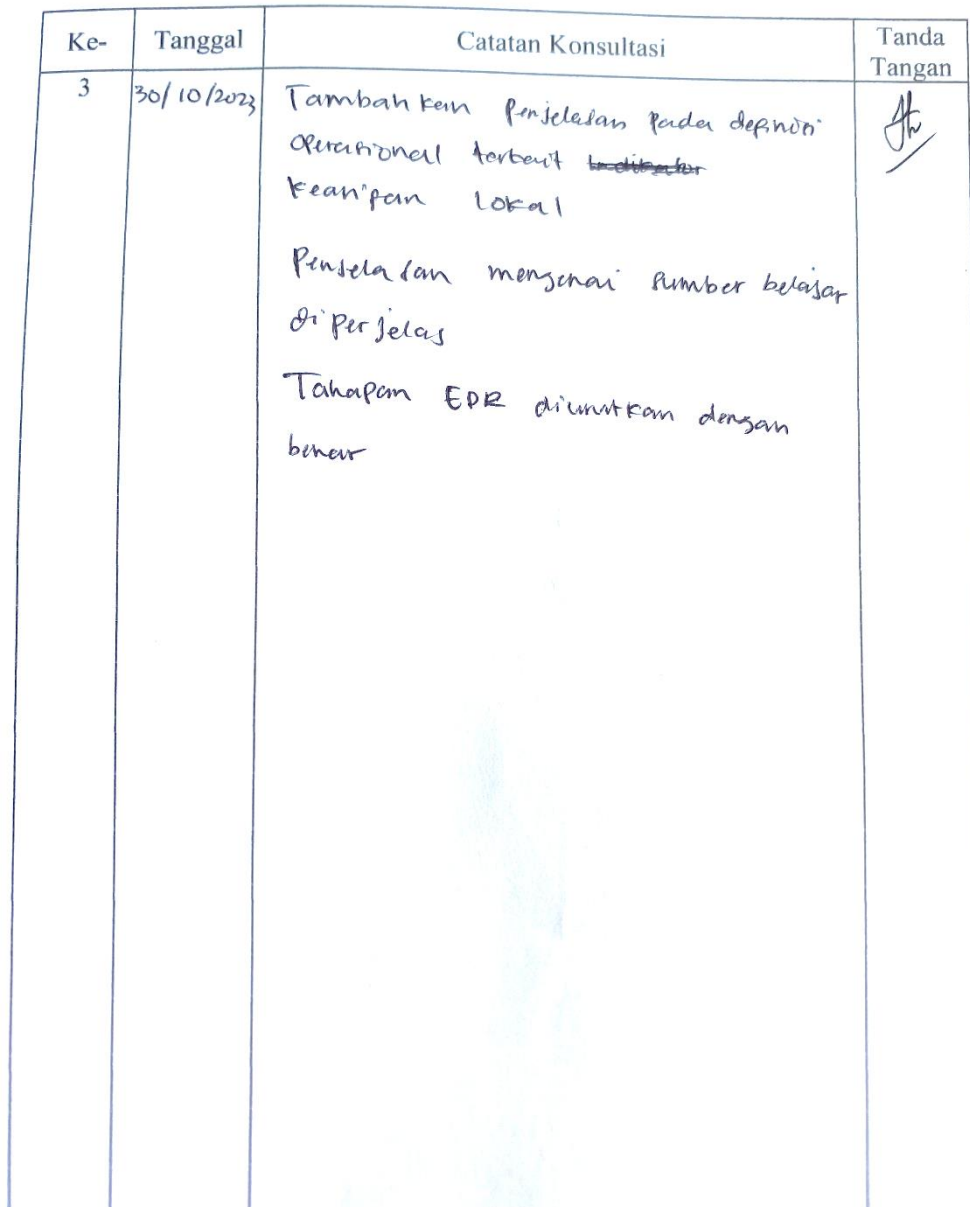 Ke- Tanggal Catatan Konsultasi Tanda Tangan
3 30/10/2023 Tambahkan Penjelasan Pada definisi
Operasional terkait indikator
kearifan lokal
Penjelasan mengenai sumber belajar
diperjelas
Tahapan EDR diurutkan dengan
benar